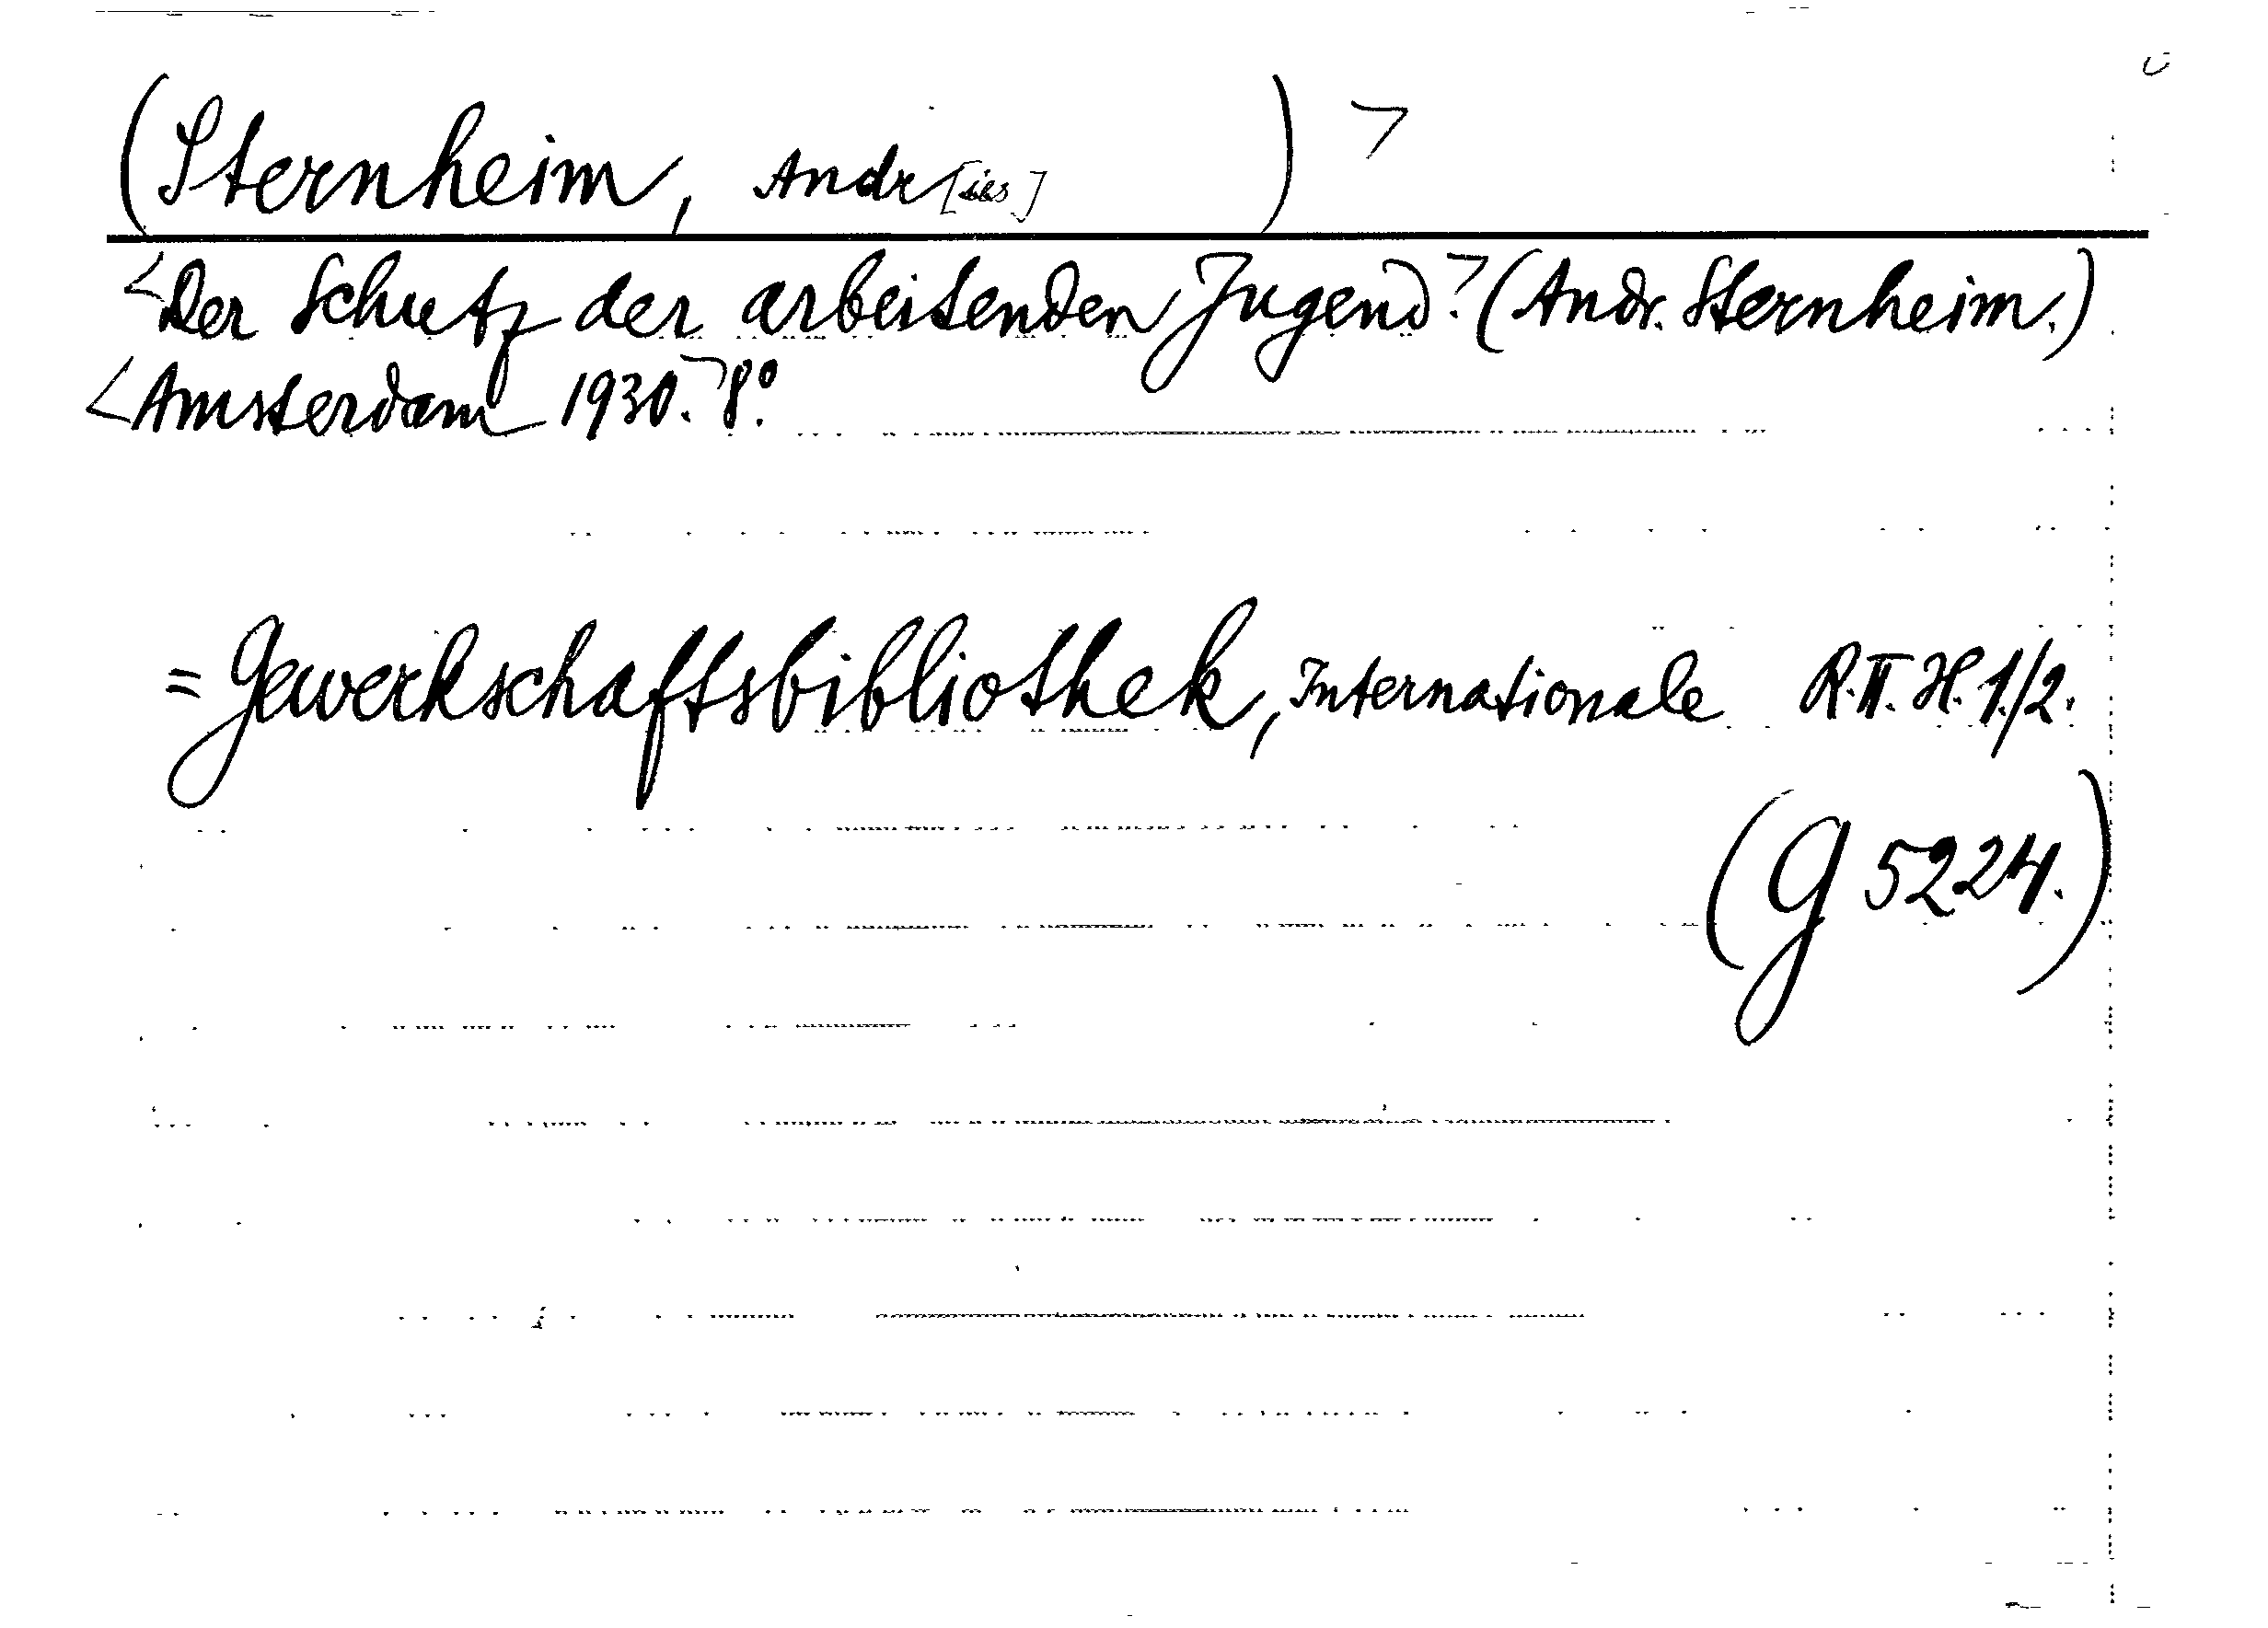 (Sternheim, Andr[ies] ) >
<Der Schutz der arbeitenden Jugend.> (Andr. Sternheim.)
<Amsterdam 1930.> 8°.
= Gewerkschaftsbibliothek, Internationale R.II. H. 1./2.
(G 5224.)